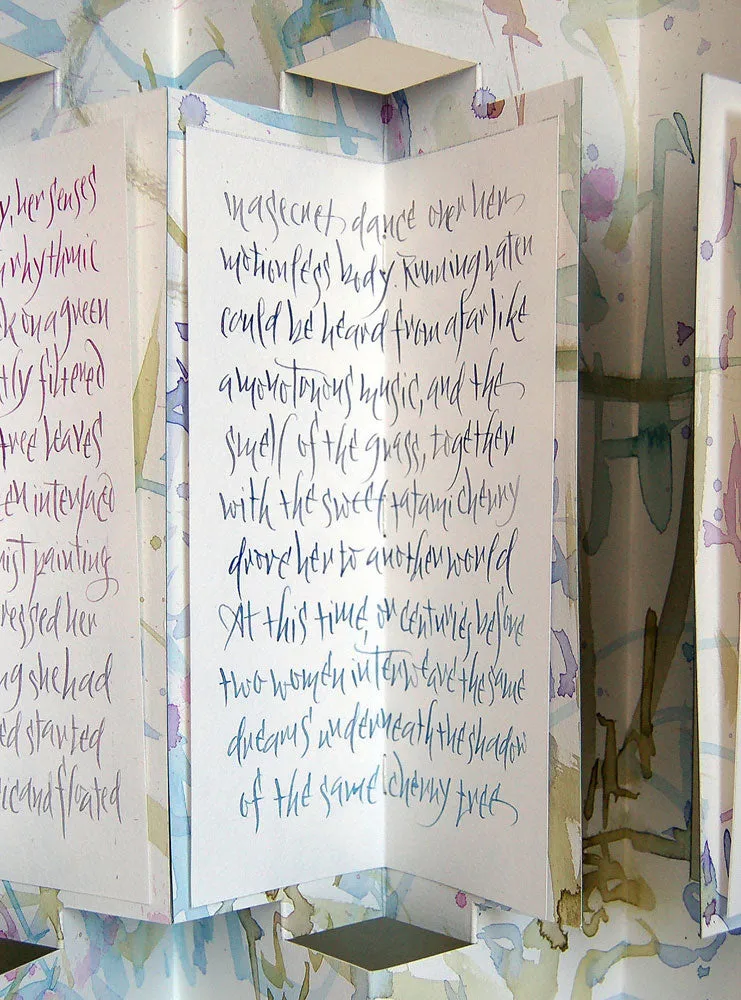 y, her senses
rhythmic
k on a green
tly filtered
tree leaves
en interlaced
nist painting
ressed her
ng she had
ed started
ic and floated
in a secret dance over her
motionless body. Running water
could be heard from afar like
a monotonous music, and the
smell of the grass, together
with the sweet tatami cherry
drove her to another world
At this time, or centuries before
two women interweave the same
dreams underneath the shadow
of the same cherry tree